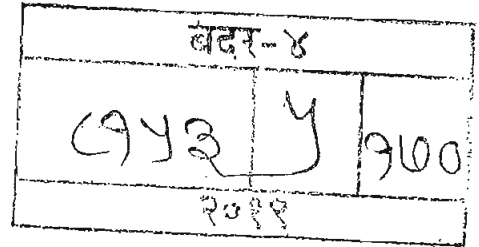 बदर-४
८१५३ ५ १७०
२०११